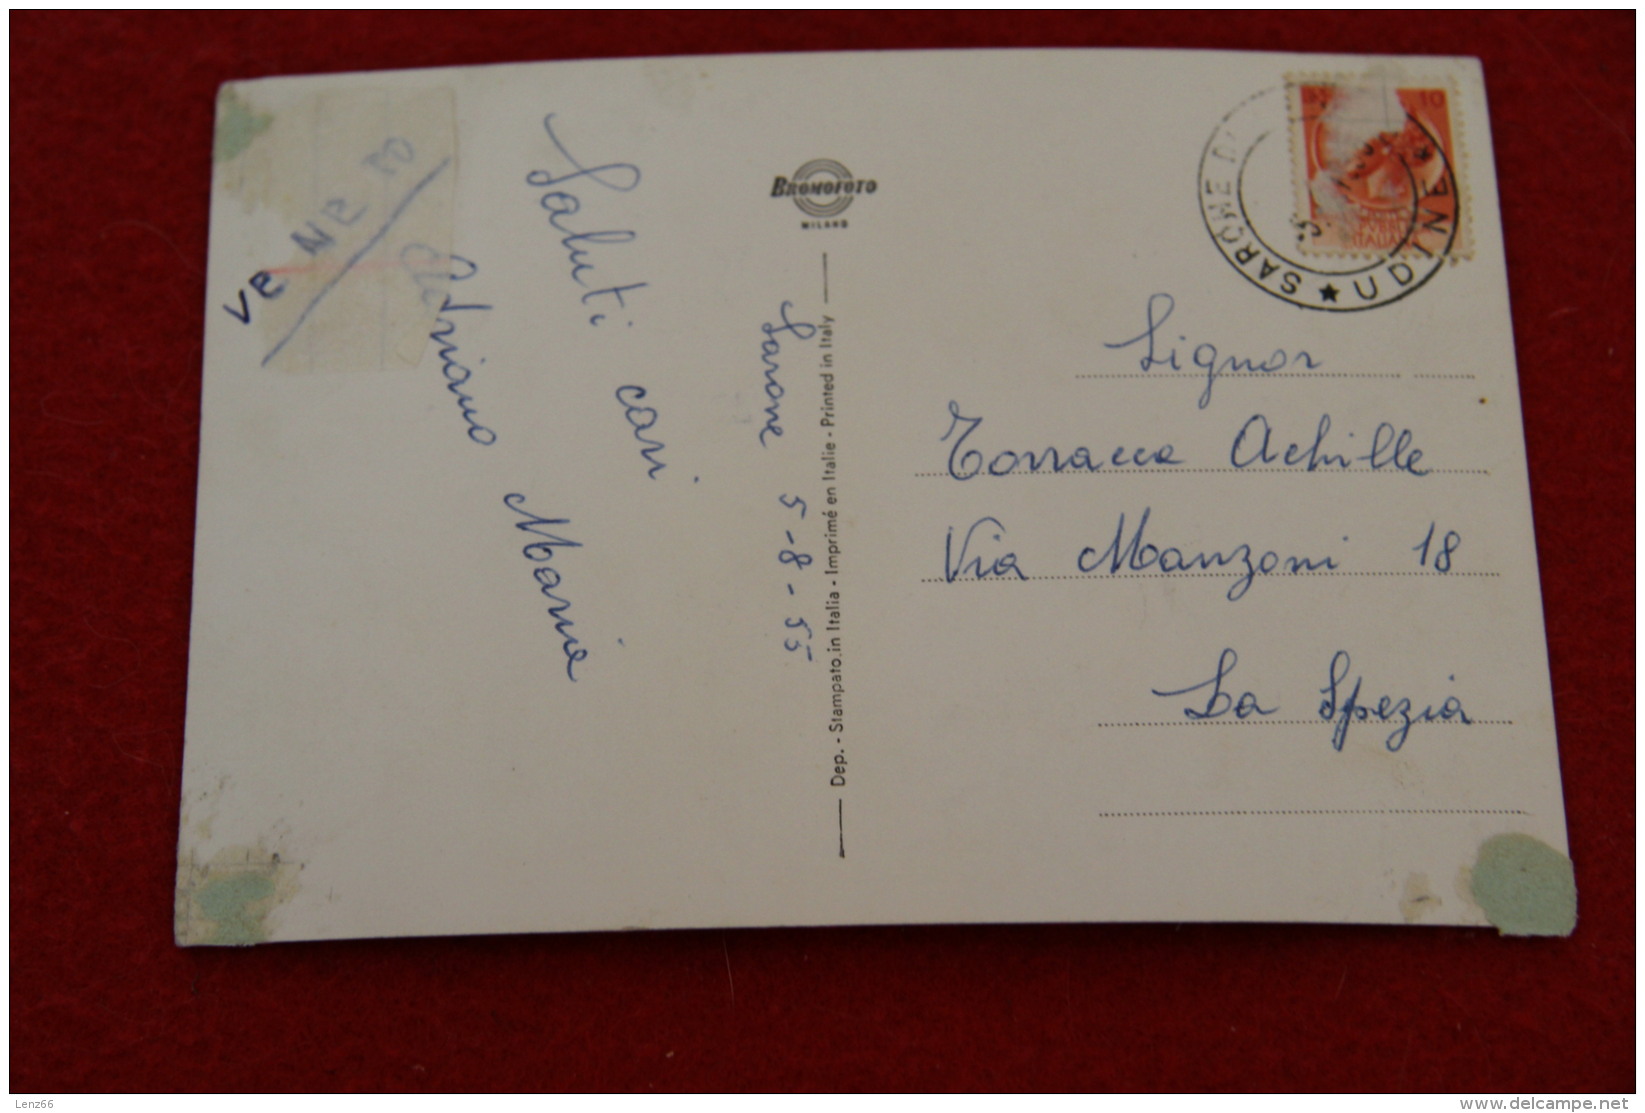 VENEZ
Saluti cari
Adriano Maria
Sarone 5-8-55
BROMOFOTO
MILANO
Dep. - Stampato in Italia - Imprimé en Italie - Printed in Italy
10
ITALIA
SARONE
★ UDINE
Signor
Torracca Achille
Via Manzoni 18
La Spezia
Lenz66
www.delcampe.net